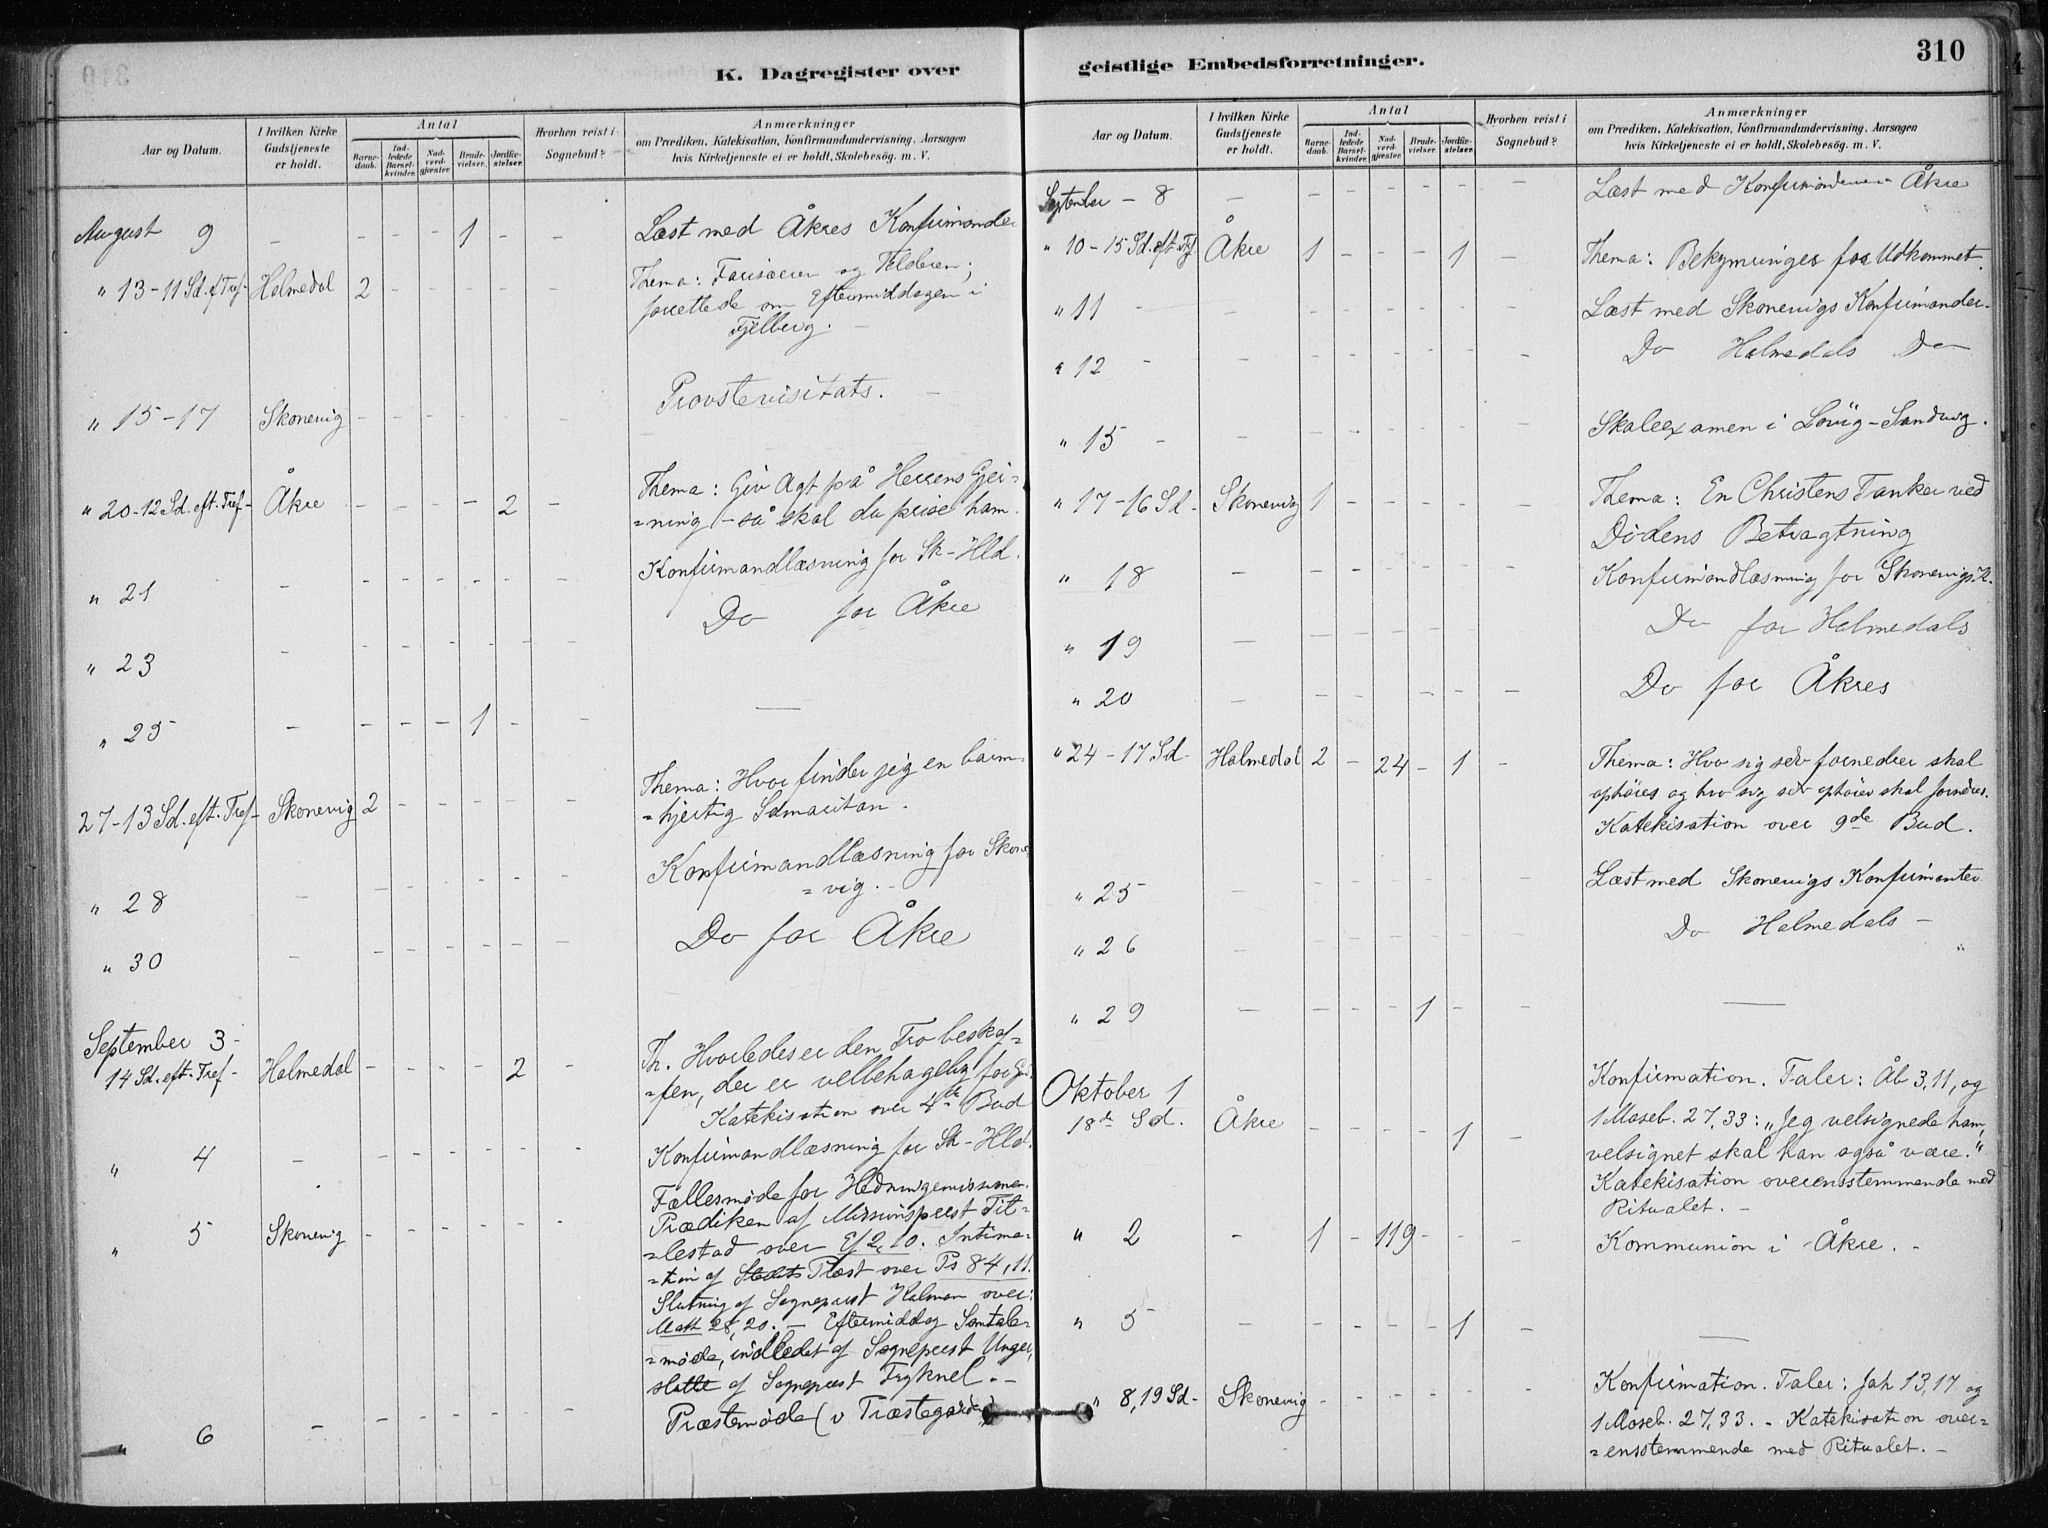 K. Dagregister over
Aar og Datum.
I hvilken Kirke Gudstjeneste er holdt.
Antal
Barne-daab.
Ind-ledede Barsel-kvinder.
Nad-verd-gjæster.
Brude-vielser.
Jordfæ-stelser.
Hvorhen reist i Sognebud?
Anmærkninger
om Prædiken, Katekisation, Konfirmandundervisning, Aarsagen
hvis Kirketjeneste ei er holdt, Skolebesøg. m. V.
August 9 - - - - 1 - - Læst med Åkres Konfirmander
" 13 - 11 Sd. e. Tref. Holmedal 2 - - - - - Thema: Farisæeren og Tolderen;
forrettede om Eftermiddagen i
Fjelberg.
" 15-17 Skonevig - - - - - - Provstevisitats. -
" 20-12 Sd. eft. Tref- Åkre - - - - 2 - Thema: Giv Agt på Herrens Gjer-
=ning - så skal du prise ham.
" 21 - - - - - - - Konfirmandlæsning for Sk-Hld.
" 23 - - - - - - - Do for Åkre
" 25 - - - - 1 - -
27-13 Sd. eft. Tref- Skonevig 2 - - - - - Thema: Hvor finder jeg en barm-
=hjertig Samaritan.
" 28 - - - - - - - Konfirmandlæsning for Skone-
=vig.
" 30 - - - - - - - Do for Åkre
September 3-
14 Sd. eft. Tref- Holmedal - - - - 2 - Th. Hvorledes er den Tro beskaf-
=fen, der er velbehagelig for Gud
Katekisation over 4de Bud
" 4 - - - - - - - Konfirmandlæsning for Sk-Hld.
" 5 Skonevig - - - - - - Fællesmøde for Hedningemissionen.
Prædiken af Missionsprest Tit-
=lestad over Ef 2,10. Intima-
=tion af Stedets Præst over Ps 84,11.
Slutning af Sogneprest Kalman over:
Math 28,20. - Eftermiddag Samtale-
=møde, indledet af Sogneprest Unger,
slutte af Sogneprest Fryknel. -
" 6 - - - - - - - Præstemøde (v Træstegården)
geistlige Embedsforretninger.
310
Aar og Datum.
I hvilken Kirke Gudstjeneste er holdt.
Antal
Barne-daab.
Ind-ledede Barsel-kvinder.
Nad-verd-gjæster.
Brude-vielser.
Jordfæ-stelser.
Hvorhen reist i Sognebud?
Anmærkninger
om Prædiken, Katekisation, Konfirmandundervisning, Aarsagen
hvis Kirketjeneste ei er holdt, Skolebesøg. m. V.
September - 8 - - - - - - - Læst med Konfirmanderne Åkre
" 10 - 15 Sd. eft. Tref. Åkre 1 - - - 1 - Thema: Bekymringer for Udkommet.
" 11 - - - - - - - - Læst med Skonevigs Konfirmander.
" 12 - - - - - - - - Do Holmedals Do
" 15 - - - - - - - - Skoleexamen i Lövig-Sandvig.
" 17-16 Sd - Skonevig 1 - - - - - Thema: En Christens Tanker ved
Dödens Betragtning
" 18 - - - - - - - Konfirmandlæsning for Skonevigs K.
" 19 - - - - - - - Do for Holmedals
" 20 - - - - - - - Do for Åkres
" 24-17 Sd- Holmedal 2 - 24 - 1 - Thema: Hvo sig selv fornedrer skal
ophøies og hvo sig selv ophøier skal fornedres.
Katekisation over 9de Bud.
" 25 - - - - - - - Læst med Skonevigs Konfirmanter
" 26 - - - - - - - Do Holmedals - "
" 29 - - - - 1 - -
Oktober 1
18de Sd. Åkre - - - - 1 - Konfirmation. Taler: Åb 3,11, og
1 Moseb. 27,33: "Jeg velsignede ham,
velsignet skal han også være."
Katekisation overenstemmende med
Ritualet. -
" 2 - 1 - 119 - - - Kommunion i Åkre. -
" 5 - - - - - 1 -
" 8, 19 Sd- Skonevig - - - - - - Konfirmation. Taler: Joh 13,17 og
1 Moseb. 27,33. - Katekisation over=
=ensstemmende med Ritualet. -